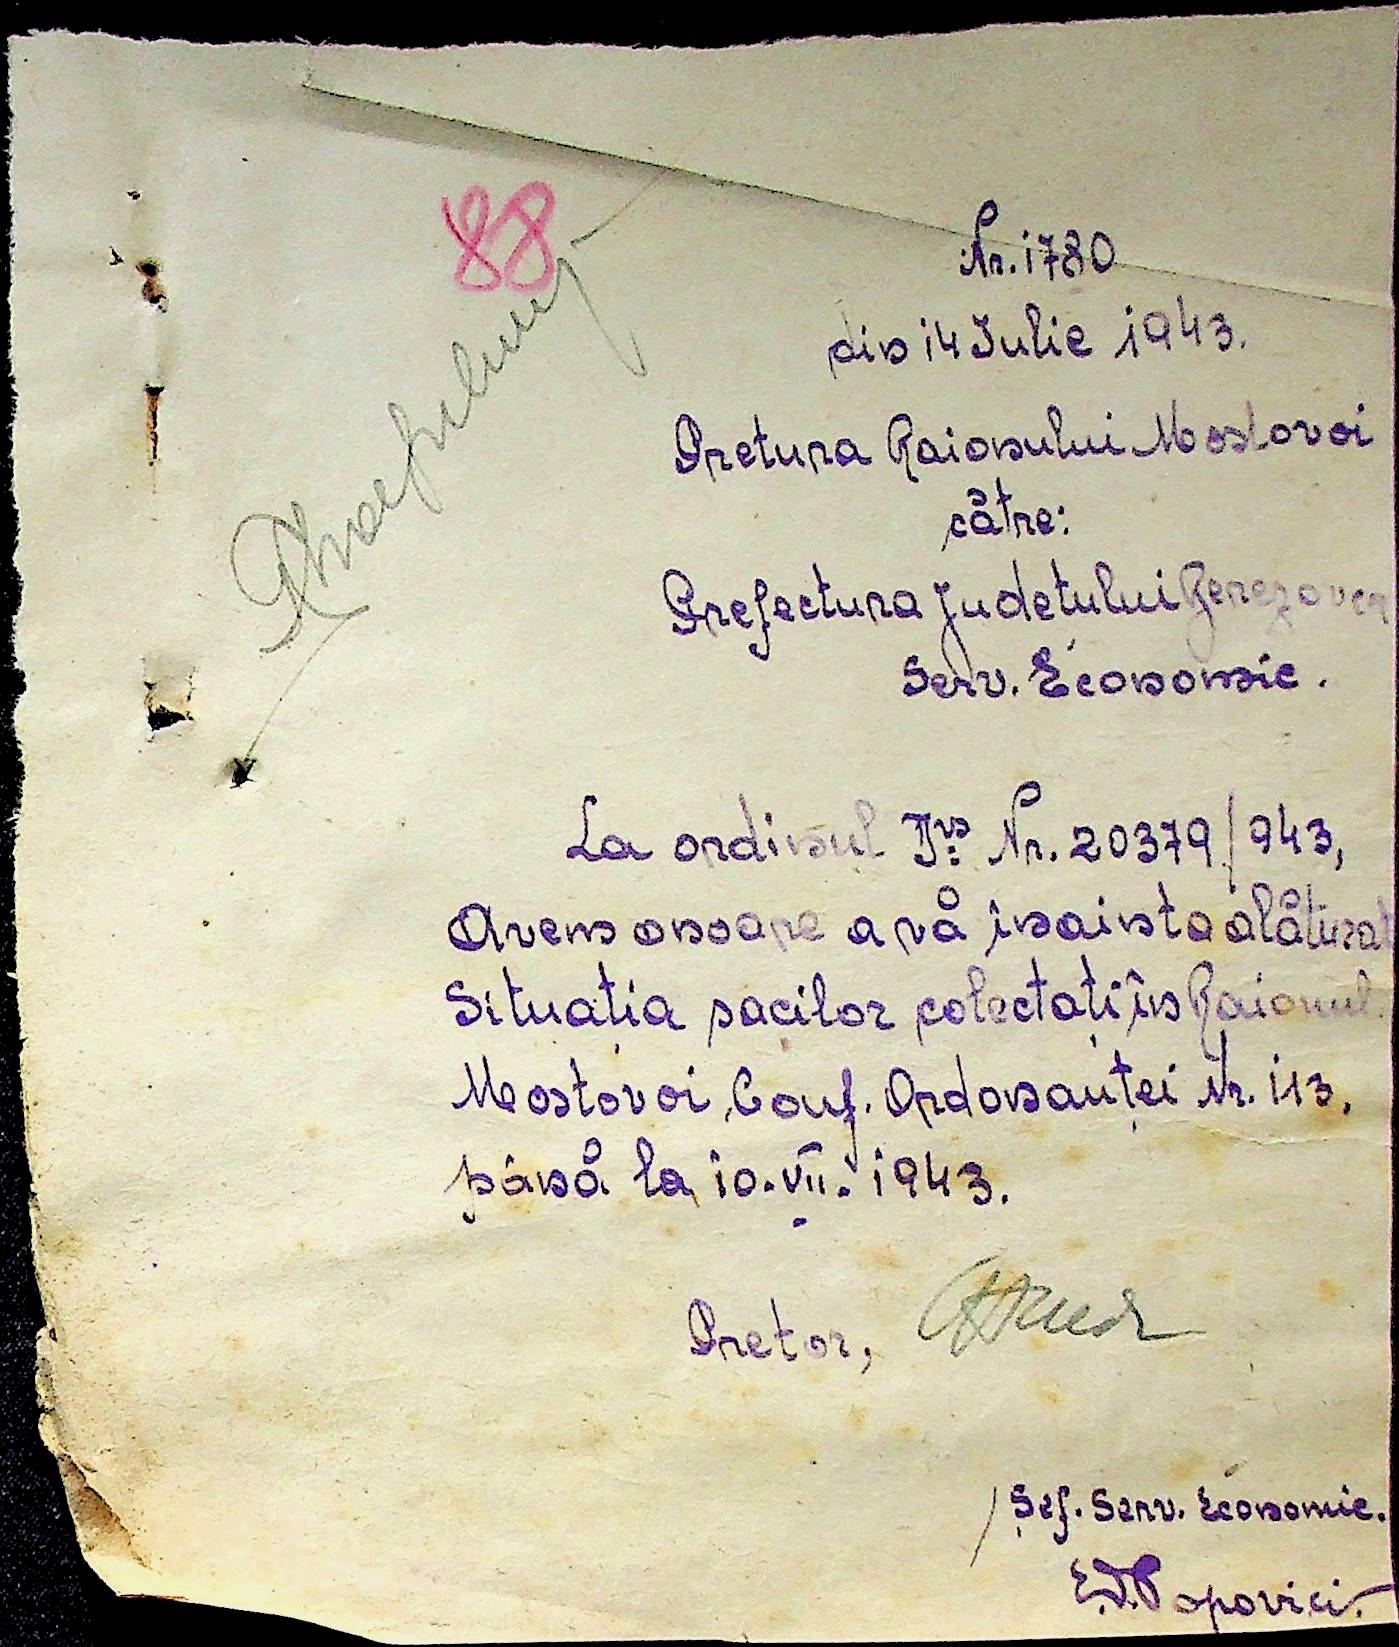 88
Nr. 1780
din 14 Iulie 1943.
Pretura Raionului Mostovoi
către:
Prefectura Judetului Berezovca
Serv. Economic.
La ordinul Dvs Nr. 20379/943,
Avem onoare a vă inainta alăturat
Situația sacilor colectați în Raionul
Mostovoi, Conf. Ordonanței Nr. 113,
până la 10.VII.1943.
Pretor,
Șef. Serv. Economic.
E.D. Popovici.